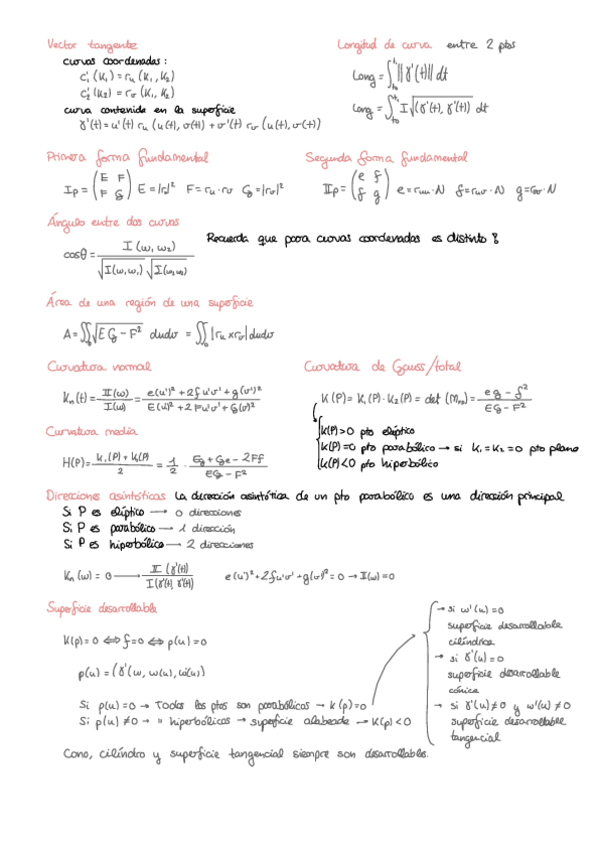 Vector tangente
curvas coordenadas:
C₁'(K₁) = r_u (K₁, K₂)
C₂'(K₂) = r_v (K₁, K₂)
curva contenida en la superficie
γ'(t) = u'(t) r_u (u(t), v(t)) + v'(t) r_v (u(t), v(t))
Longitud de curva entre 2 ptos
Long = ∫_{t₀}^{t₁} ||γ'(t)|| dt
Long = ∫_{t₀}^{t₁} I√(γ'(t), γ'(t)) dt
Primera forma fundamental
I_P = (E F / F G) E = |r_u|² F = r_u · r_v G = |r_v|²
Segunda forma fundamental
II_P = (e f / f g) e = r_uu · N f = r_uv · N g = r_vv · N
Ángulo entre dos curvas
cosθ = I(w, w₂) / √I(w, w₁) √I(w₂, w₂)
Recuerda que para curvas coordenadas es distinto !
Área de una región de una superficie
A = ∬√EG - F² dudv = ∬|r_u x r_v| dudv
Curvatura normal
K_n(t) = II(w) / I(w) = e(u')² + 2f u'v' + g(v')² / E(u')² + 2Fu'v' + G(v')²
Curvatura de Gauss/total
K(P) = K₁(P) · K₂(P) = det (M) = eg - f² / EG - F²
K(P) > 0 pto elíptico
K(P) = 0 pto parabólico → si K₁ = K₂ = 0 pto plano
K(P) < 0 pto hiperbólico
Curvatura media
H(P) = K₁(P) + K₂(P) / 2 = 1/2 · Eg + Ge - 2Ff / EG - F²
Direcciones asintóticas La dirección asintótica de un pto parabólico es una dirección principal
Si P es elíptico → 0 direcciones
Si P es parabólico → 1 dirección
Si P es hiperbólico → 2 direcciones
K_n(w) = 0 → II(γ'(t)) / I(γ'(t), γ'(t)) e(u')² + 2f u'v' + g(v')² = 0 → II(w) = 0
Superficie desarrollable
K(p) = 0 ⇔ f = 0 ⇔ p(u) = 0
p(u) = (γ'(u), w(u), w'(u))
Si p(u) = 0 → Todos los ptos son parabólicos → K(p) = 0
Si p(u) ≠ 0 → " hiperbólicos → superficie alabeada → K(p) < 0
→ si w'(u) = 0
superficie desarrollable
cilíndrica
→ si γ'(u) = 0
superficie desarrollable
cónica
→ si γ'(u) ≠ 0 y w'(u) ≠ 0
superficie desarrollable
tangencial
Cono, cilindro y superficie tangencial siempre son desarrollables.